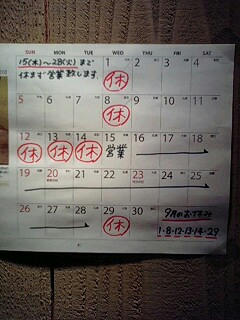 SUN MON TUE WED THU FRI SAT
15(水)~28(火)まで
休まず営業致します
1 2 3 4
休
5 6 7 8 9 10 11
休
12 13 14 15 16 17 18
休 休 休 営業
19 20 21 22 23 24 25
26 27 28 29 30
休
9月のおやすみ
1・8・12・13・14・29